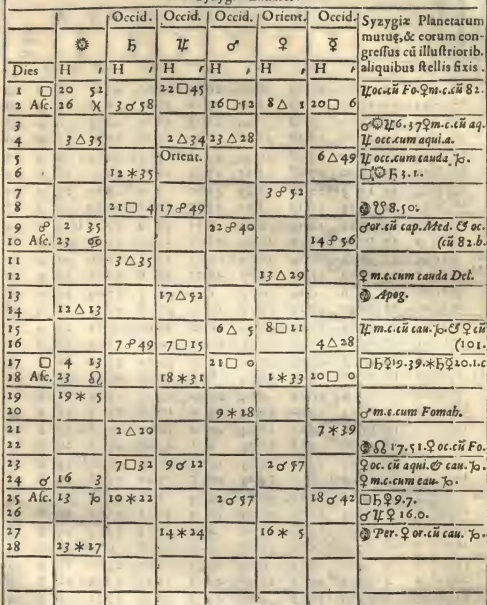 Occid. Occid. Occid. Orient. Occid. Syzygiæ Planetarum
☉ ♄ ♃ ♂ ♀ ☿ mutuę, & eorum con-
gressus cū illustriorib.
Dies H ′ H ′ H ′ H ′ H ′ H ′ aliquibus stellis fixis.
1 □ 20 52 22 □ 45 ♃ oc.cū Fo. ♀ m.c.cū 82.
2 Asc. 26 ♓ 3 ☌ 58 16 □ 52 8 △ 1 20 □ 6
3 ♂ ☉ ♃ 6.37 ♀ m.c.cū aq.
4 3 △ 35 2 △ 34 23 △ 28 ♃ occ.cum aqui.a.
5 Orient. 6 △ 49 ♃ occ.cum cauda ♑.
6 12 ⚹ 35 □ ☉ ♄ 3.1.
7 3 ☍ 52
8 21 □ 4 17 ☍ 49 ☽ ☋ 8.50.
9 ☍ 2 35 22 ☍ 40 ♂ or.cū cap. Med. & oc.
10 Asc. 23 ♋ 14 ☍ 56 (cū 82.b.
11 3 △ 35
12 13 △ 29 ♀ m.c.cum cauda Del.
13 17 △ 52 ☽ Apog.
14 12 △ 13
15 6 △ 5 8 □ 11 ♃ m.c.cū cau. ♑. & ♀ cū
16 7 ☍ 49 7 □ 15 4 △ 28 (101.
17 □ 4 13 21 □ 0 □ ♄ ♀ 19.39. ⚹ ♄ ☿ 20.1.c
18 Asc. 23 ♌ 18 ⚹ 31 1 ⚹ 33 20 □ 0
19 19 ⚹ 5
20 9 ⚹ 18 ♂ m.c.cum Fomah.
21 2 △ 20 7 ⚹ 39
22 ☽ ☊ 17.51. ♀ oc.cū Fo.
23 7 □ 32 9 ☌ 12 2 ☌ 57 ♀ oc. cū aqui. & cau. ♑.
24 ☌ 16 3 ♀ m.c.cum cau. ♑.
25 Asc. 13 ♑ 10 ⚹ 22 2 ☌ 57 18 ☌ 42 □ ♄ ♀ 9.7.
26 ☌ ♃ ♀ 16.0.
27 14 ⚹ 24 16 ⚹ 5 ☽ Per. ♀ or.cū cau. ♑.
28 23 ⚹ 17